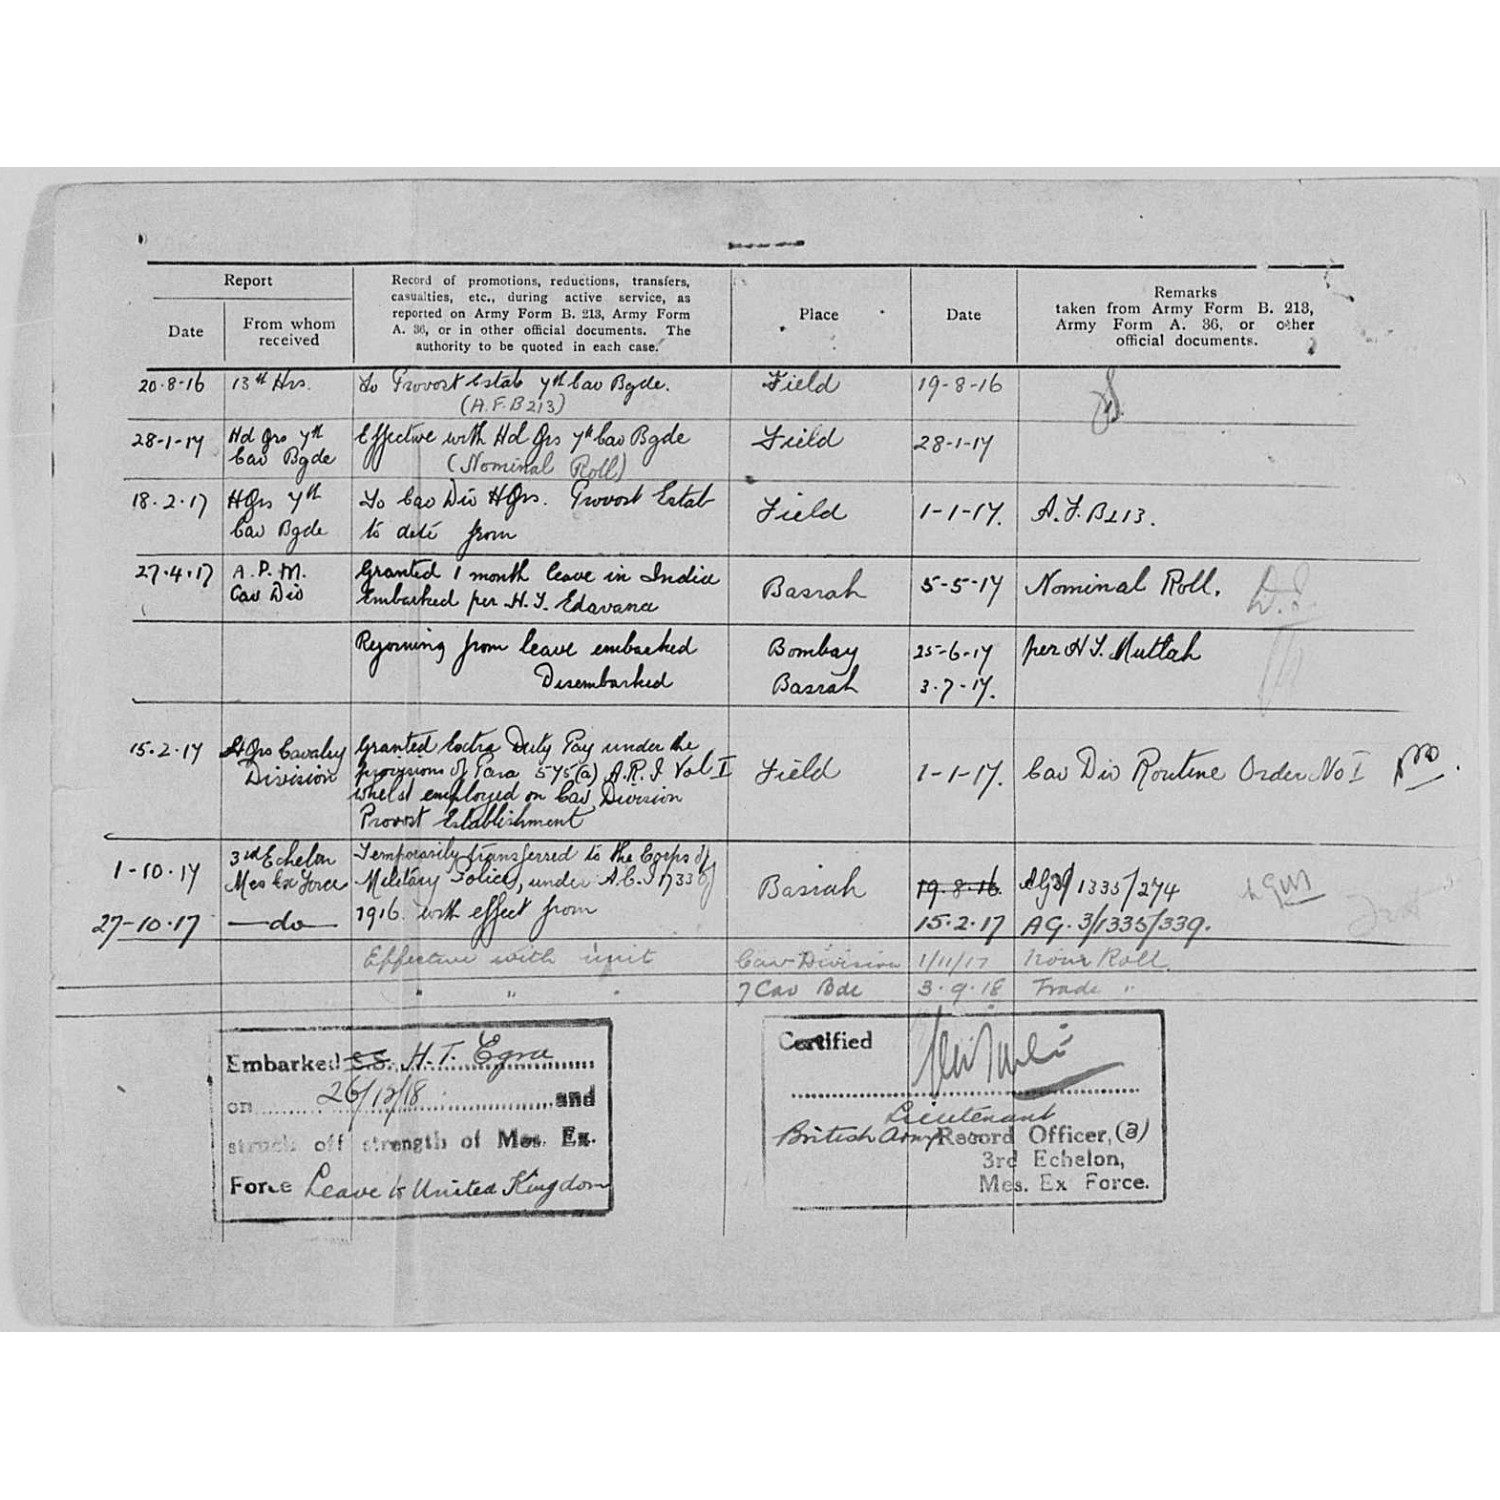 Report
Date
From whom
received
Record of promotions, reductions, transfers,
casualties, etc., during active service, as
reported on Army Form B. 213, Army Form
A. 36, or in other official documents. The
authority to be quoted in each case.
Place
Date
Remarks
taken from Army Form B. 213,
Army Form A. 36, or other
official documents.
20-8-16 13th Hrs. To Provost Estab 7th Cav Bgde. Field 19-8-16
(A.F.B213)
28-1-17 Hd Qrs 7th Effective with Hd Qrs 7th Cav Bgde Field 28-1-17
Cav Bgde (Nominal Roll)
18.2.17 HQrs 7th To Cav Div HQrs. Provost Estab Field 1-1-17. A.F.B213.
Cav Bgde to date from
27.4.17 A.P.M. Granted 1 month leave in India Basrah 5-5-17 Nominal Roll.
Cav Div Embarked per H.T. Edavana
Rejoining from leave embarked Bombay 25-6-17 per H.T. Muttah
Disembarked Basrah 3-7-17.
15.2.17 HQrs Cavalry Granted Extra Duty Pay under the
Division provisions of Para 575(a) A.R.I Vol I Field 1-1-17. Cav Div Routine Order No I
whilst employed on Cav Division
Provost Establishment
3rd Echelon Temporarily transferred to the Corps of
1-10-17 Mes Ex Force Military Police, under A.C.I 1733 of Basrah 19.8.16. 1335/274
27-10-17 —do— 1916. with effect from 15.2.17 AG.3/1335/339.
Effective with unit Cav Division 1/11/17 Roll
" " " 7 Cav Bde 3.9.18 Trade "
Embarked S.S. H.T. Egra
on 26/12/18 and
struck off strength of Mes. Ex.
Force Leave to United Kingdom
Certified
Lieutenant
British Army Record Officer, (a)
3rd Echelon,
Mes. Ex Force.